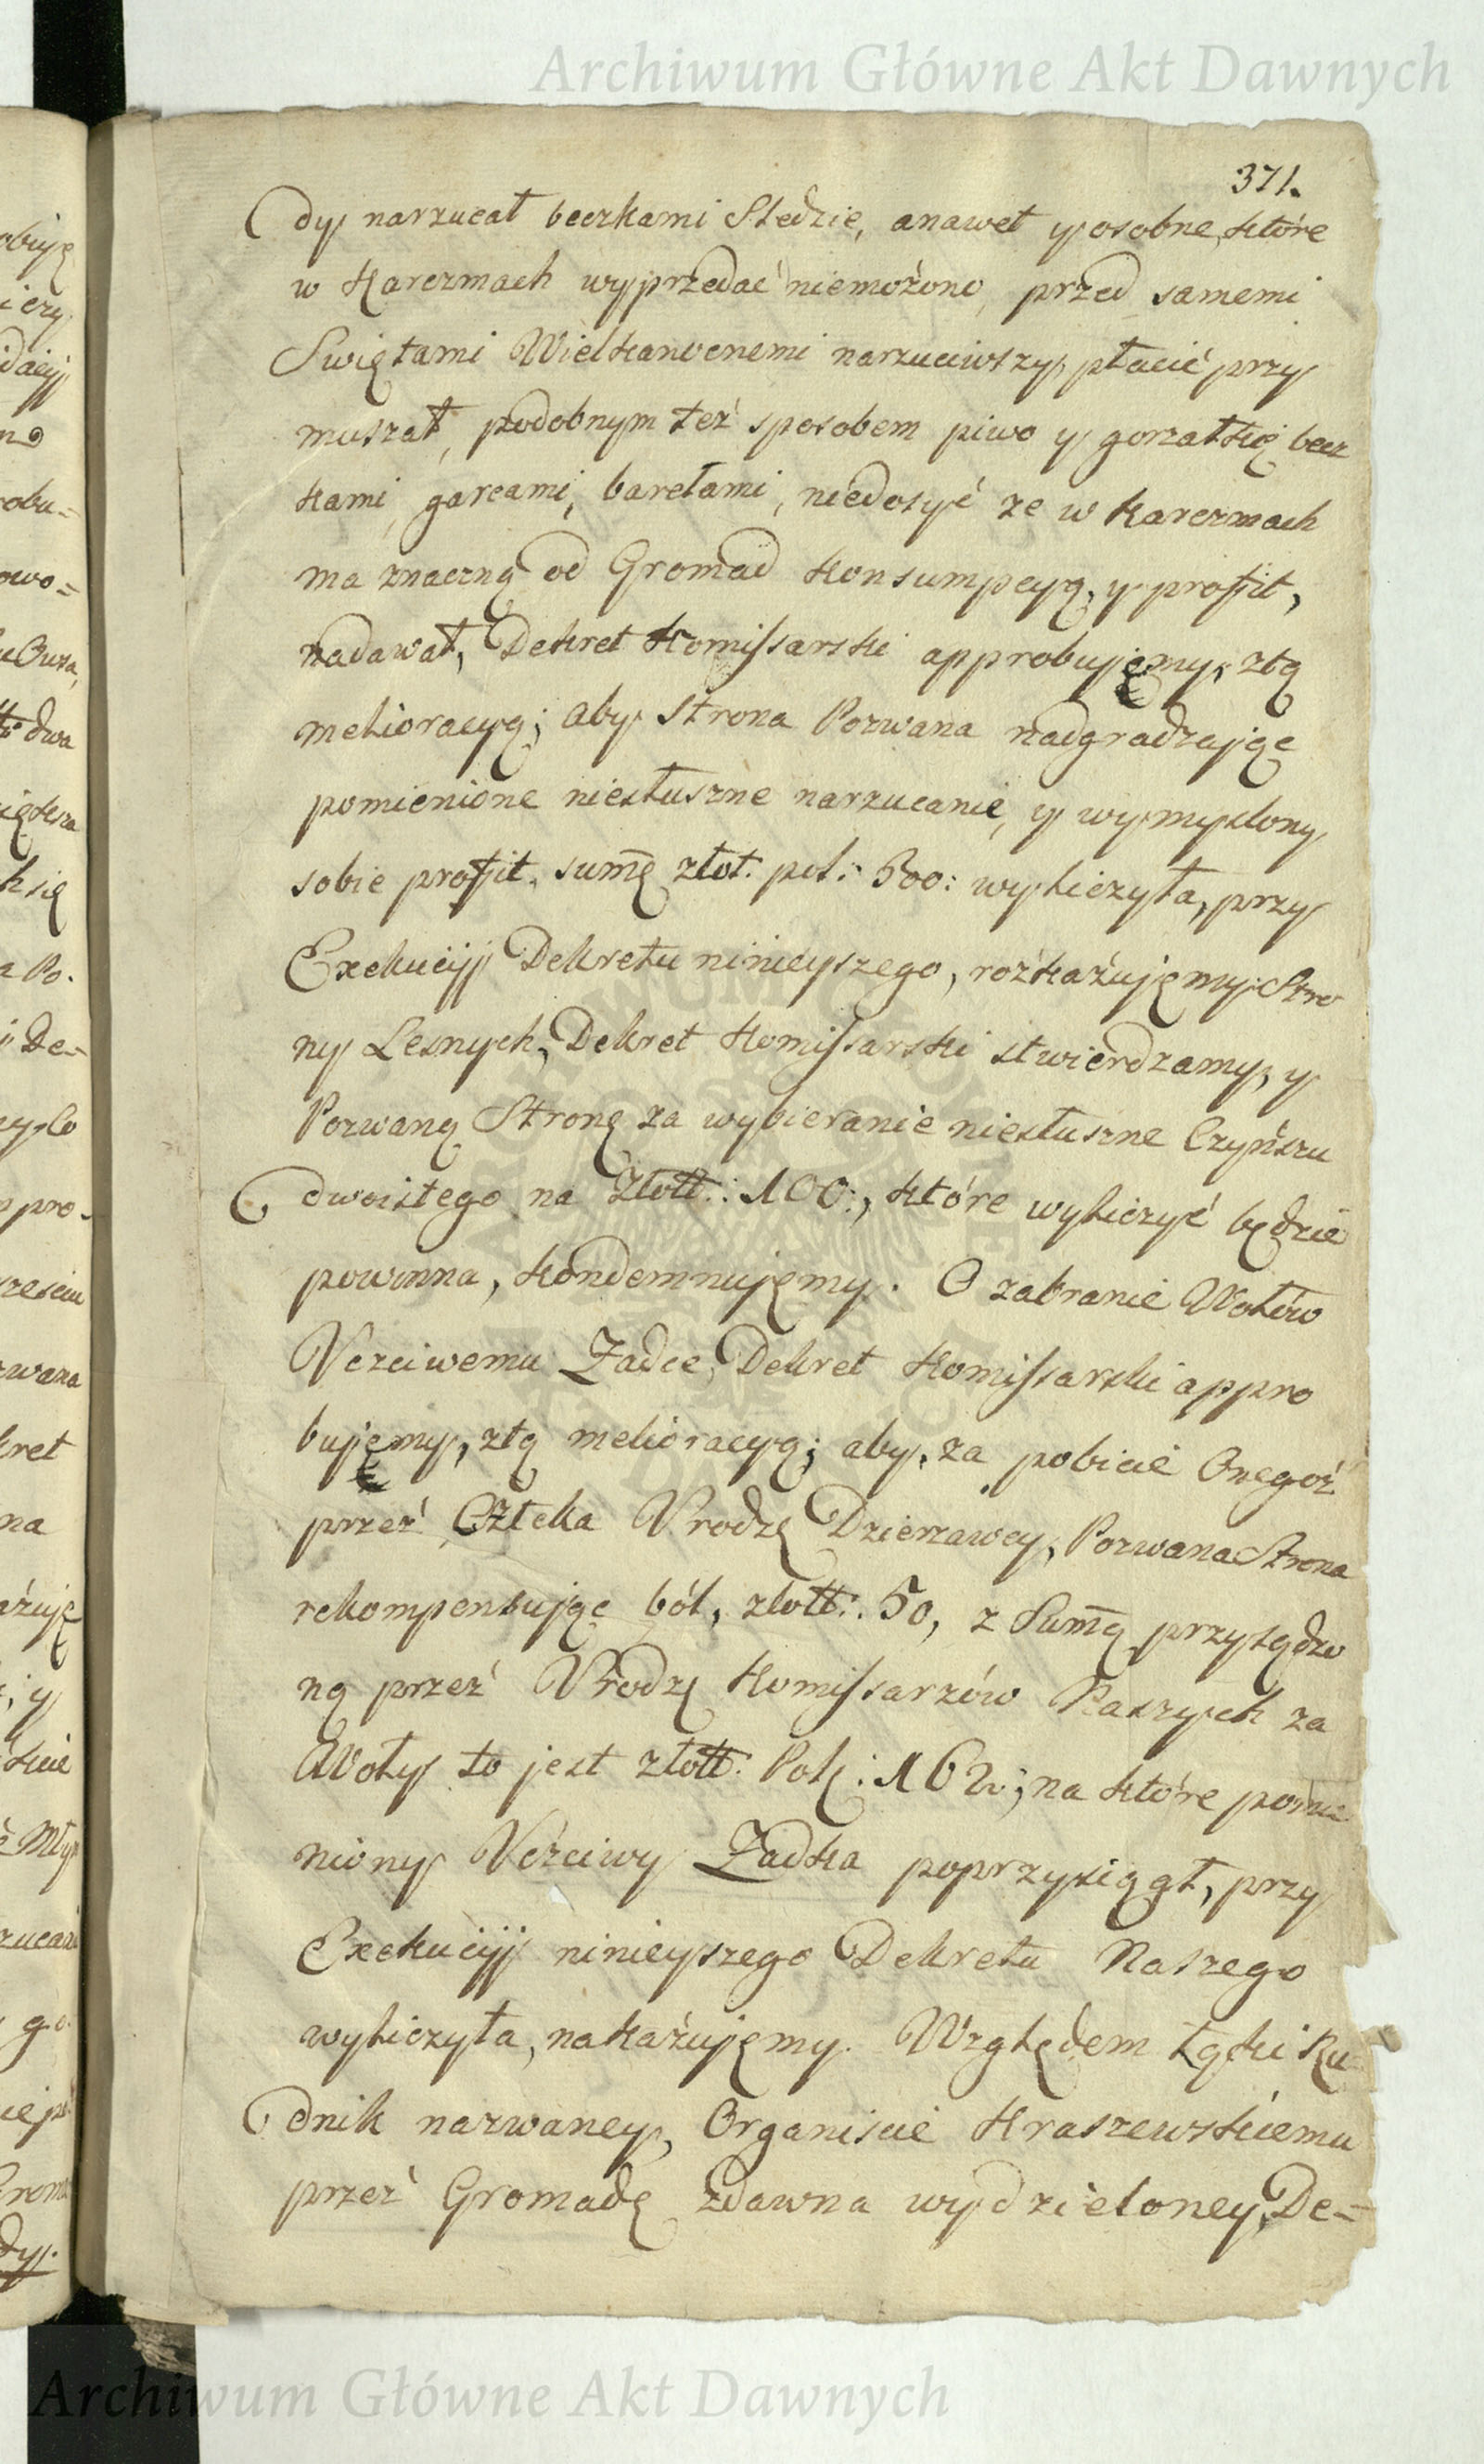 Archiwum Główne Akt Dawnych
371.
dy narzucał beczkami Sledzie, anawet y osobne, które
w Karczmach wyprzedać niemożono, przed samemi
Swiętami Wielkanocnemi narzuciwszy, płacić przy
muszał, podobnym też sposobem piwo y gorzałkę becz
kami, garcami, barełami, niedosyć ze w karczmach
ma znaczną od Gromad Konsumpcyą, y profit,
nadawał, Dekret Komissarski approbujęmy, ztą
melioracyą; aby Strona Pozwana nadgradzając
pomienione niesłuszne narzucanie, y wymyslony
sobie profit, sumę złot: pol: 500: wyliczyła, przy
Exekucyi Dekretu ninieyszego, rozkażujęmy: Stro
ny Lesnych, Dekret Komissarski stwierdzamy, y
Pozwaną Stronę za wybieranie niesłuszne Czynszu
dwoistego na Złott: 100:, które wyliczyć będzie
powinna, kondemnujęmy. O zabranie Wołów
Vczciwemu Zadce, Dekret Komissarski appro
bujęmy, ztą melioracyą; aby, za pobicie Onegoż
przeż Człeka Vrodzę Dzierzawcy, Pozwana Strona
rekompensując ból, złott: 50, z Sumą przysądzo
ną przeż Vrodz Komissarzów Naszych za
Woły to jest złott: Pol: 162; na które pomie
niony Vczciwy Zadka poprzysiągł, przy
Exekucyi ninieyszego Dekretu Naszego
wyliczyła, nakażujęmy. Względem Łąki Ru=
dnik nazwaney, Organiscie Kraszewskiemu
przeż Gromadę zdawna wydzieloney, De=
Archiwum Główne Akt Dawnych